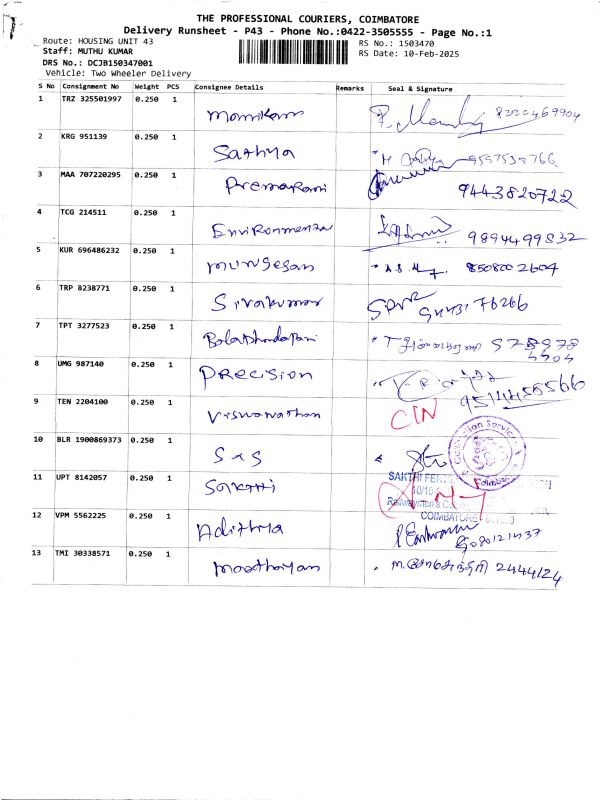 THE PROFESSIONAL COURIERS, COIMBATORE
Delivery Runsheet - P43 - Phone No.:0422-3505555 - Page No.:1
Route: HOUSING UNIT 43 RS No.: 1503470
Staff: MUTHU KUMAR RS Date: 10-Feb-2025
DRS No.: DCJB150347001
Vehicle: Two Wheeler Delivery
S No Consignment No Weight PCS Consignee Details Remarks Seal & Signature
1 TRZ 325501997 0.250 1 Manikam 8220469904
2 KRG 951139 0.250 1 Sathya 9597535766
3 MAA 707220295 0.250 1 Premarani 9443820722
4 TCG 214511 0.250 1 Environmental 9894499832
5 KUR 696486232 0.250 1 Murugesan 8508002604
6 TRP 8238771 0.250 1 Sivakumar
7 TPT 3277523 0.250 1
8 UMG 987140 0.250 1 Precision
9 TEN 2204100 0.250 1 Viswanathan CIN
10 BLR 1900869373 0.250 1 S&S
11 UPT 8142057 0.250 1 Sakthi
SAKTHI
COIMBATORE
12 VPM 5562225 0.250 1 Adithya
13 TMI 30338571 0.250 1 2444124